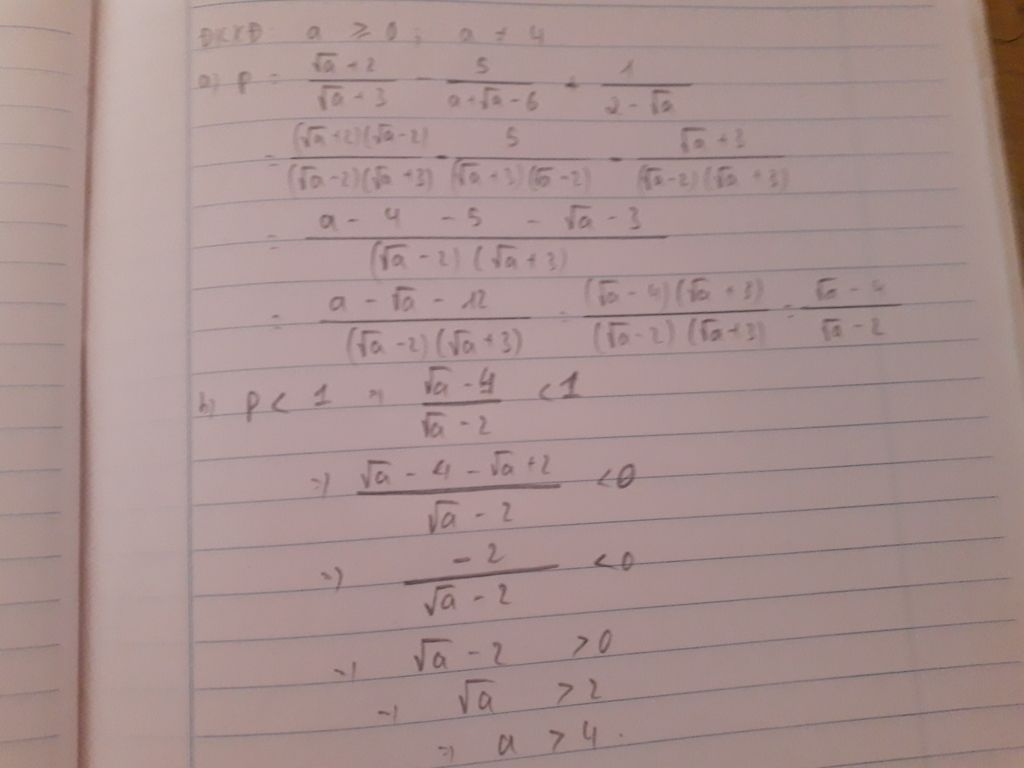 ĐKXĐ: a ≥ 0; a ≠ 4
a) P = (√a + 2)/(√a + 3) - 5/(a + √a - 6) + 1/(2 - √a)
= ((√a + 2)(√a - 2))/((√a - 2)(√a + 3)) - 5/((√a + 3)(√a - 2)) - (√a + 3)/((√a - 2)(√a + 3))
= (a - 4 - 5 - √a - 3)/((√a - 2)(√a + 3))
= (a - √a - 12)/((√a - 2)(√a + 3)) = ((√a - 4)(√a + 3))/((√a - 2)(√a + 3)) = (√a - 4)/(√a - 2)
b) P < 1 => (√a - 4)/(√a - 2) < 1
=> (√a - 4 - √a + 2)/(√a - 2) < 0
=> (-2)/(√a - 2) < 0
=> √a - 2 > 0
=> √a > 2
=> a > 4.